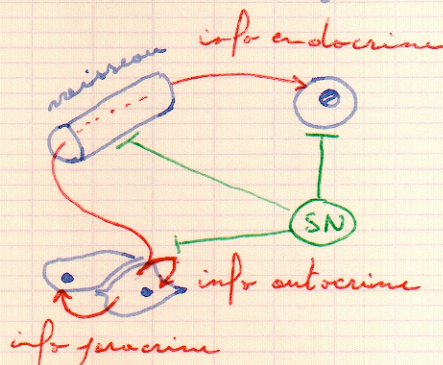 info endocrine
vaisseau
SN
info autocrine
info paracrine